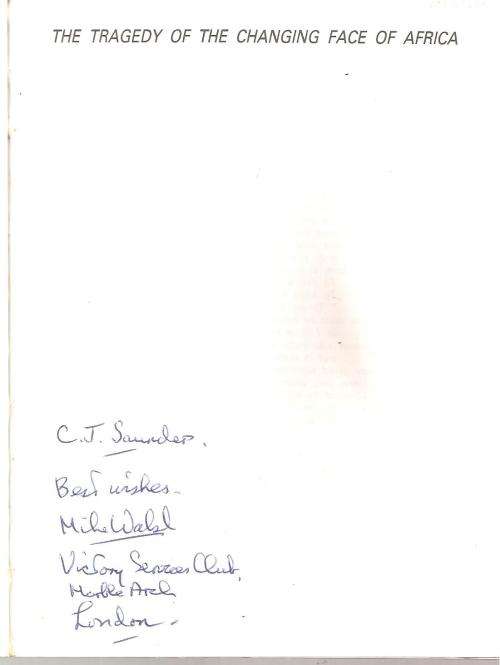 THE TRAGEDY OF THE CHANGING FACE OF AFRICA
C.J. Saunders.
Best wishes -
Mike Walsh
Victory Services Club,
Marble Arch
London -